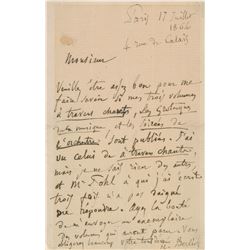 Paris 17 Juillet
1864
4 rue de Calais
Monsieur
Veuillez être assez bon pour me
faire savoir si mes trois volumes
à travers chants, les Grotesques
de la musique et les soirées de
l'orchestre sont publiés. J'ai
vu celui de à travers chants
mais je ne sais rien des autres,
et Mr Pohl à qui j'ai écrit
trois fois n'a pas daigné
me répondre. Ayez la bonté
de m'envoyer un exemplaire
du volume qui aurait paru. Vous
obligerez beaucoup votre Berlioz